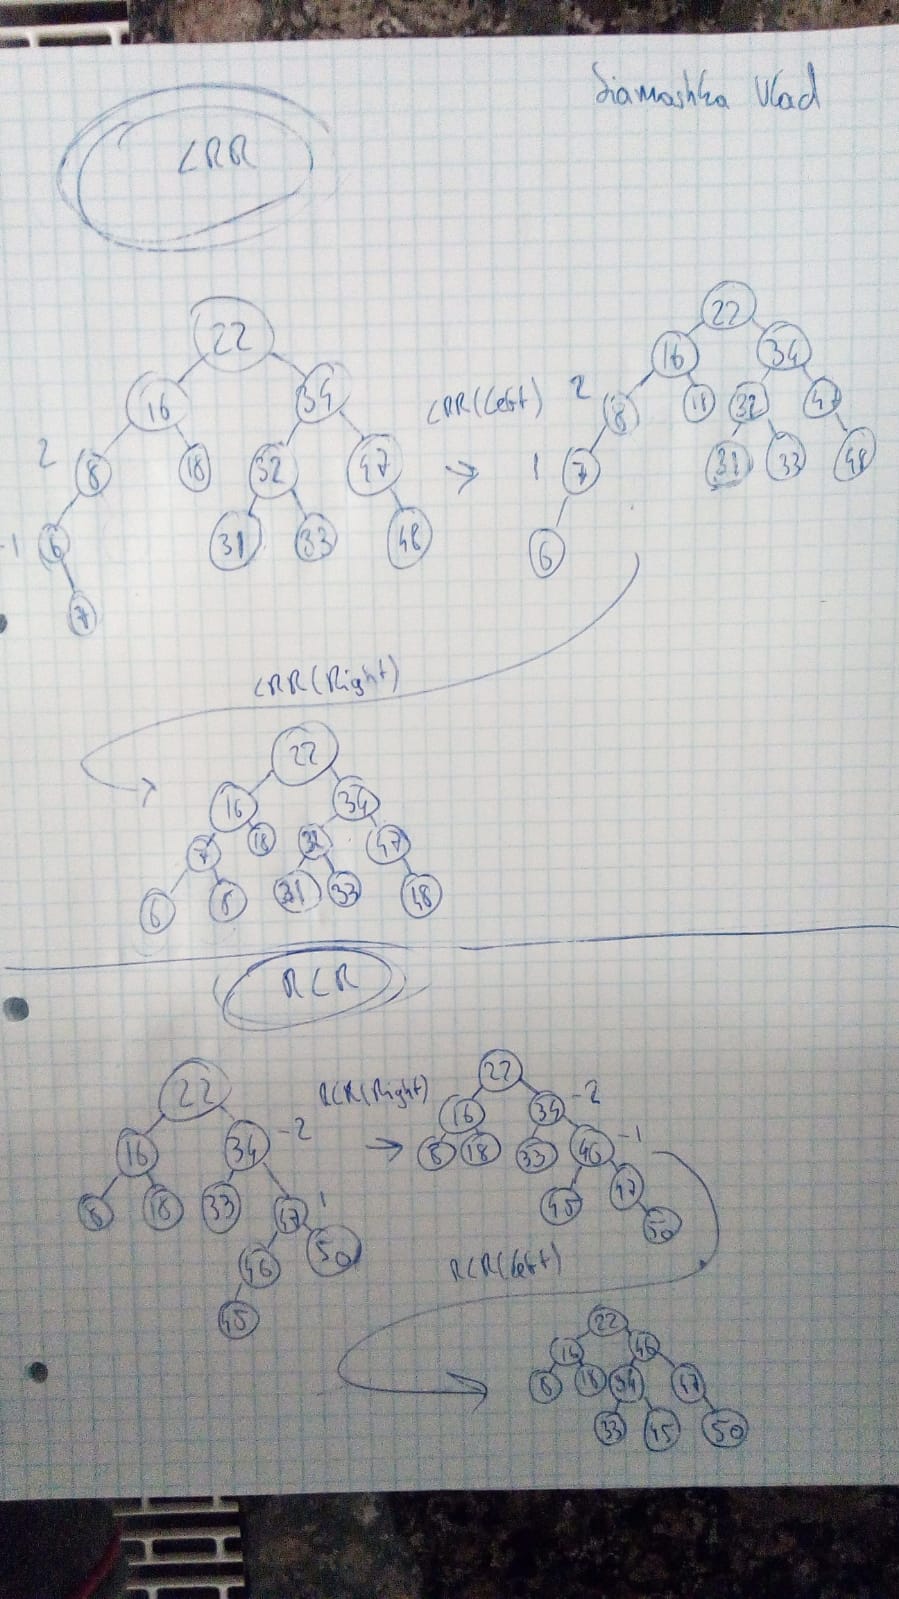 Siamashka Vlad
LRR
22
16 34
2 8 18 32 47
-1 6 31 33 48
7
LRR(Left)
22
16 34
2 8 18 32 47
1 7 31 33 48
6
LRR(Right)
22
16 34
7 18 32 47
6 8 31 33 48
RLR
22
16 34 -2
8 18 33 47 1
46 50
45
RLR(Right)
22
16 34 -2
8 18 33 46 -1
45 47
50
RLR(Left)
22
16 46
8 18 34 47
33 45 50